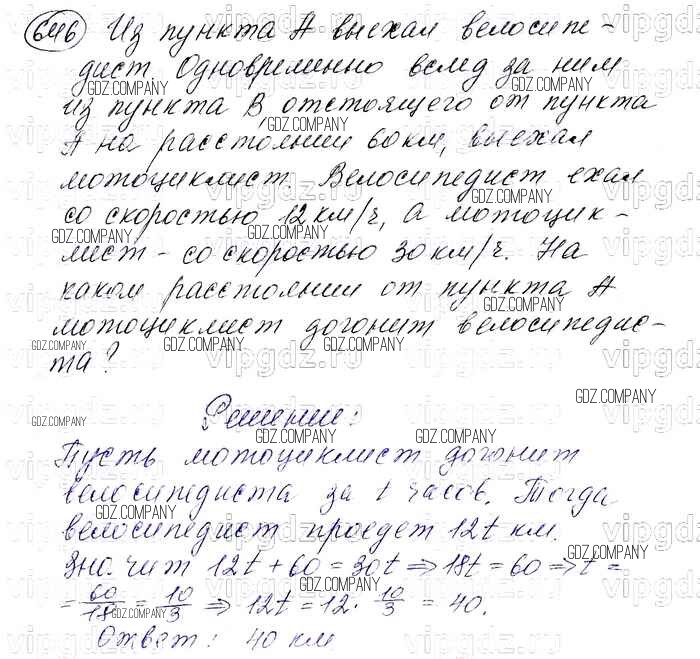 646 Из пункта А выехал велосипе-
дист. Одновременно вслед за ним
из пункта В, отстоящего от пункта
А на расстоянии 60 км, выехал
мотоциклист. Велосипедист ехал
со скоростью 12 км/ч, а мотоцик-
лист - со скоростью 30 км/ч. На
каком расстоянии от пункта А
мотоциклист догонит велосипедис-
та?
Решение:
Пусть мотоциклист догонит
велосипедиста за t часов. Тогда
велосипедист проедет 12t км.
Значит 12t + 60 = 30t ⇒ 18t = 60 ⇒ t =
= 60/18 = 10/3 ⇒ 12t = 12 · 10/3 = 40.
Ответ: 40 км